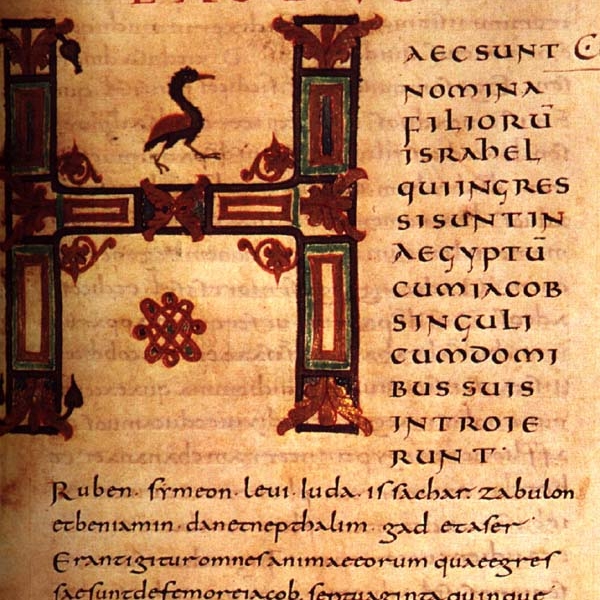 H
AECSUNT
NOMINA
FILIORŪ
ISRAHEL
QUIINGRES
SISUNTIN
AEGYPTŪ
CUMIACOB
SINGULI
CUMDOMI
BUS SUIS
INTROIE
RUNT·
Ruben· symeon· levi· Iuda· issachar· zabulon
etbeniamin· danetnepthalim· gad etaser
Erantigituromnesanimaeeorum quaeegres
saesuntdefemoreiacob, septuagintaquinque